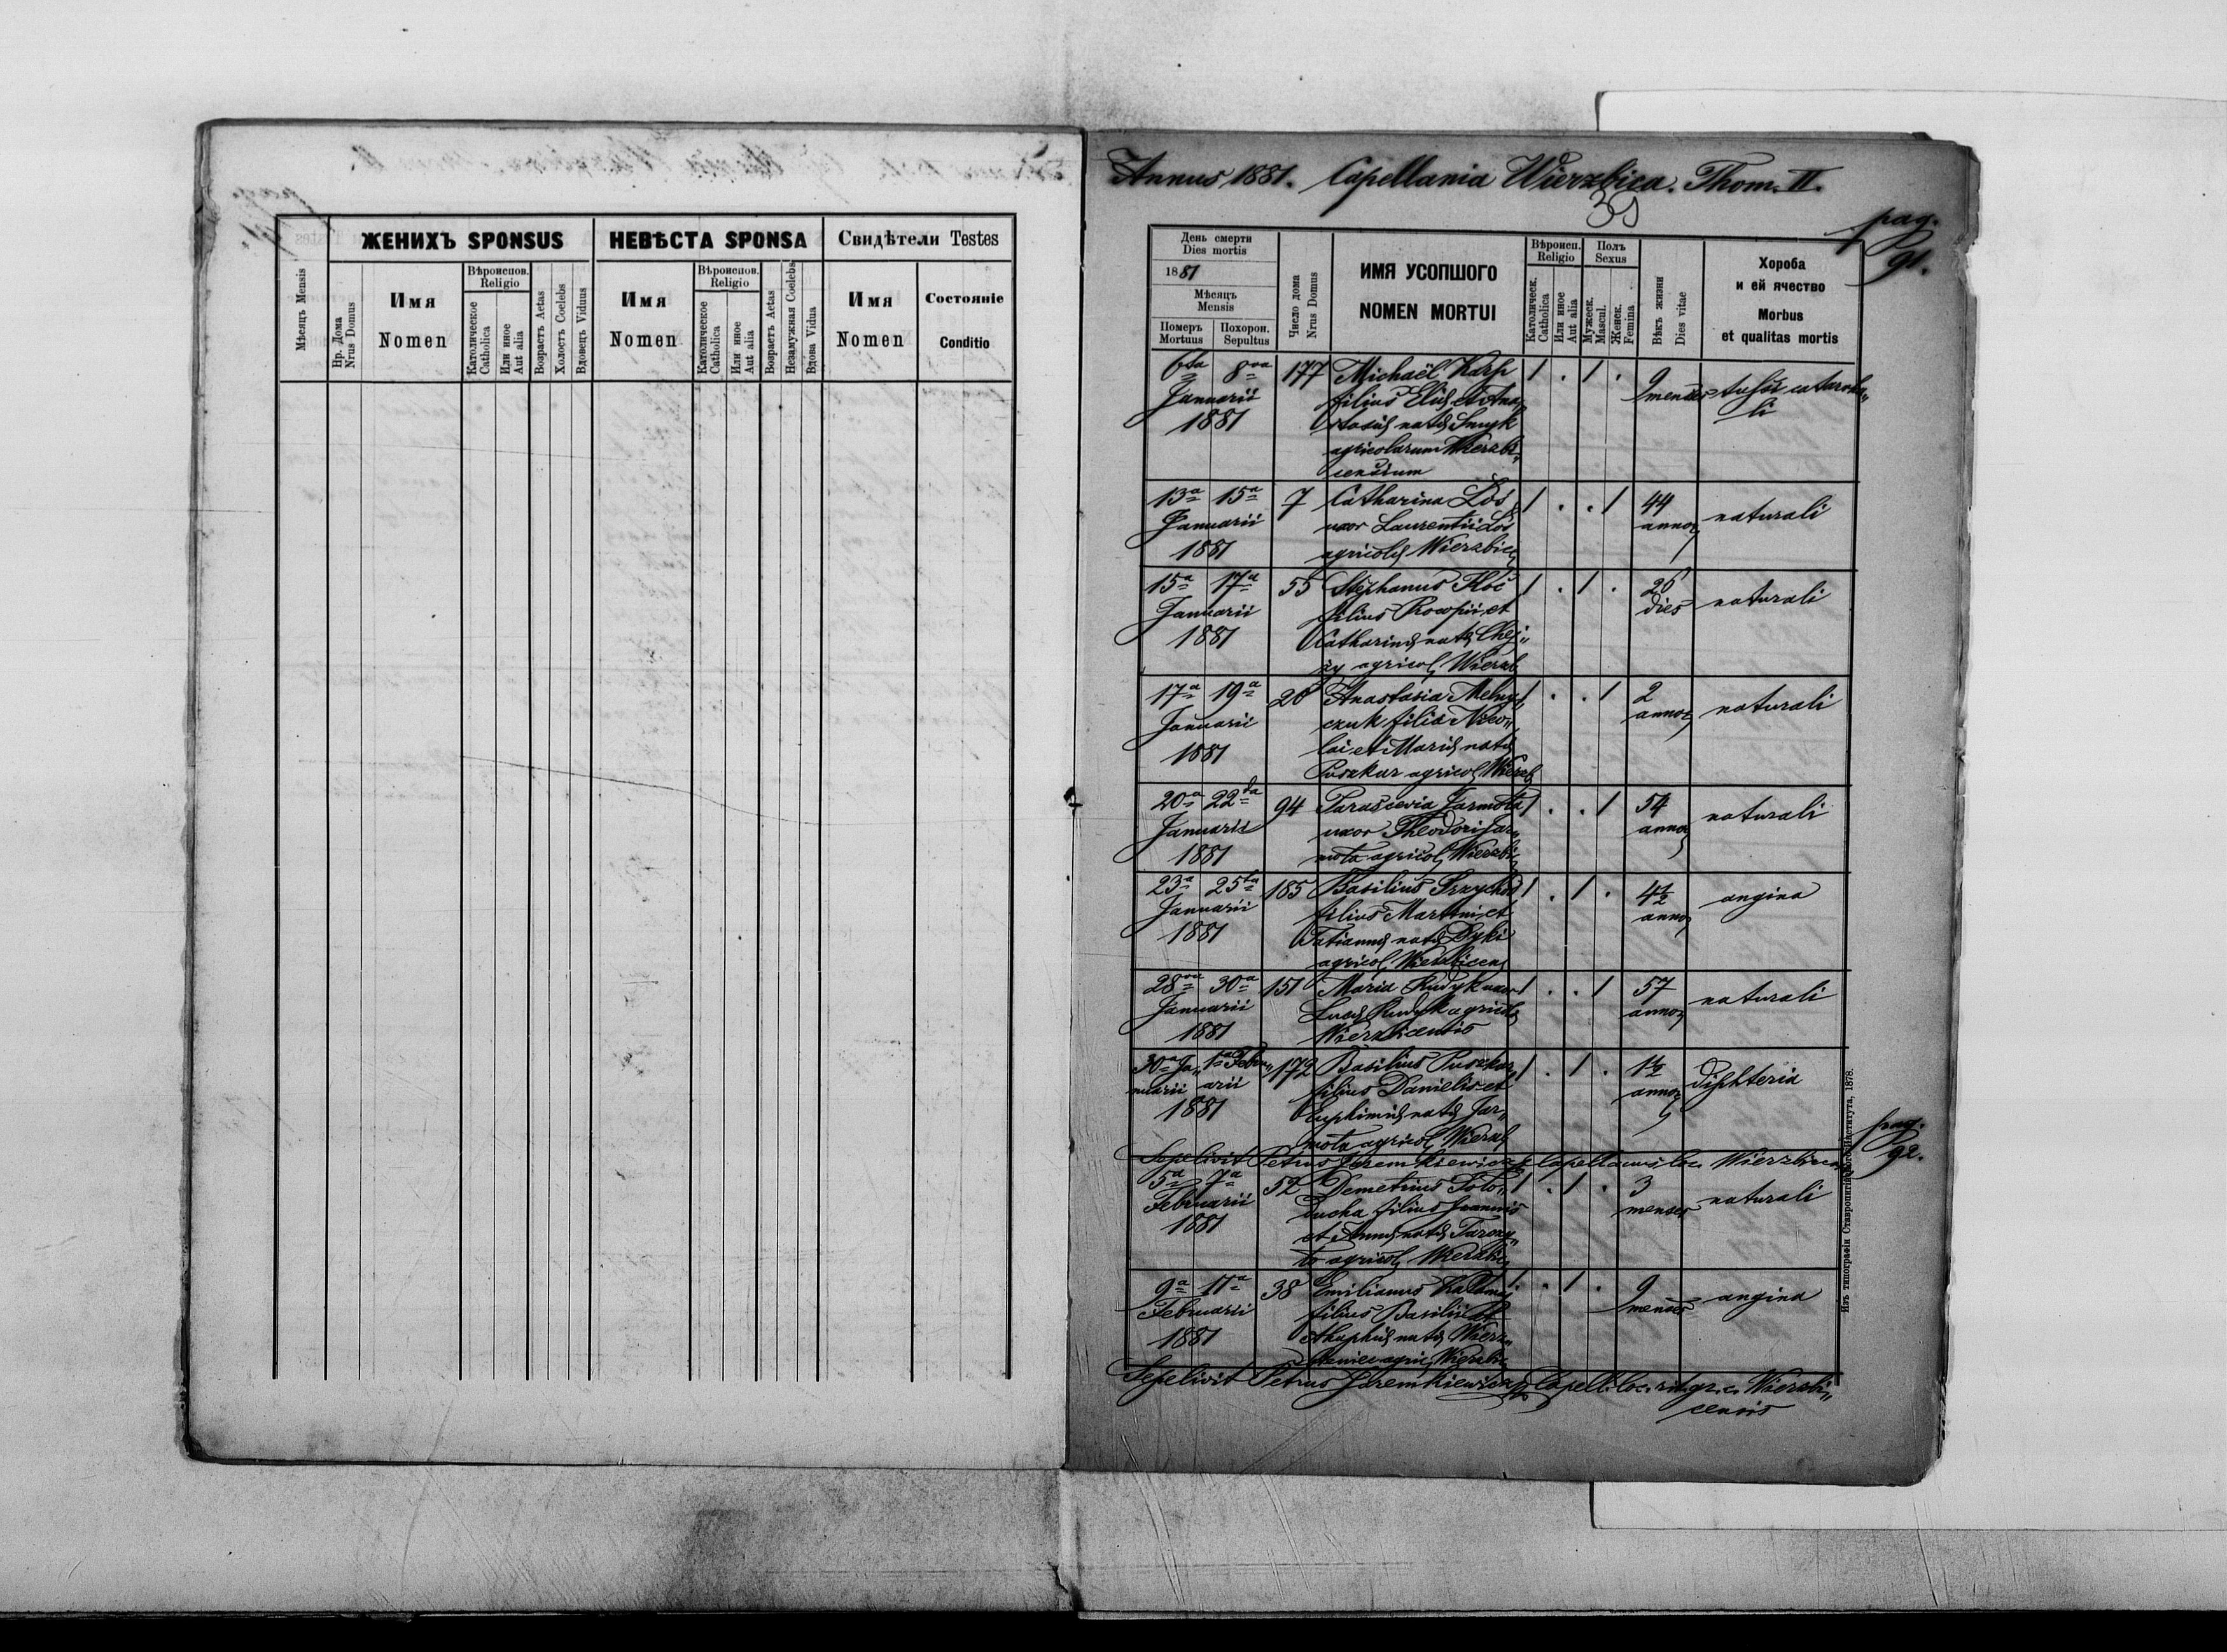 ЖЕНИХЪ SPONSUS
НЕВѢСТА SPONSA
Свидѣтели Testes
Мѣсяцъ Mensis
Нр. Дома
Nrus Domus
Имя
Nomen
Вѣроиспов.
Religio
Католическое
Catholica
Или иное
Aut alia
Возрастъ Aetas
Холостъ Coelebs
Вдовецъ Viduus
Имя
Nomen
Вѣроиспов.
Religio
Католическое
Catholica
Или иное
Aut alia
Возрастъ Aetas
Незамужная Coelebs
Вдова Vidua
Имя
Nomen
Состояніе
Conditio
Annus 1881. Capellania Wierzbica. Thom. II.
pag.
91.
День смерти
Dies mortis
1881
Мѣсяцъ
Mensis
Померъ
Mortuus
Похорон.
Sepultus
Число дома
Nrus Domus
ИМЯ УСОПШОГО
NOMEN MORTUI
Вѣроисп.
Religio
Католическ.
Catholica
Или иное
Aut alia
Полъ
Sexus
Мужеск.
Mascul.
Женск.
Femina
Вѣкъ жизни
Dies vitae
Хороба
и ей ячество
Morbus
et qualitas mortis
6ta 8va 177 Michaël Karp 1 . 1 . 9 menses tussi catarrha„
Januarii filius Eliæ et Ana„ li
1881 stasiæ natæ Smyk
agricolarum Wierzbi„
censium
13a 15a 7 Catharina Łoś 1 . . 1 44 naturali
Januarii uxor Laurentii Łoś annor
1881 agricolæ Wierzbic
15a 17a 55 Stephanus Kłoc 1 . 1 . 26 naturali
Januarii filius Procopii et dies
1881 Catharinæ natæ
agricol Wierzb
17a 19a 26 Anastasia Melny„ 1 . . 1 2 naturali
Januarii czuk filia Nico„ annor
1881 lai et Mariæ natæ
Puszkar agricol Wierzb
20a 22da 94 Parascevia Jarmoła 1 . . 1 54 naturali
Januarii uxor Theodori Jar„ annor
1881 moła agricol Wierzbi
23a 25ta 185 Basilius Przychod 1 . 1 . 4½ angina
Januarii filius Martini et annor
1881 Tatiannæ natæ Dyki
agricol Wierzbicen
28va 30a 151 Maria Rudyk uxor 1 . . 1 57 naturali
Januarii Lucæ Rudyk agricolæ annor
1881 Wierzbicensis
30a Ja„ 1a Febru„ 172 Basilius Puszkar 1 . 1 . 1½ diphteria
nuarii arii filius Danielis et annor
1881 Euphimiæ natæ Jar„
moła agricol Wierzb
Sepelivit Petrus Jaremkiewicz Capellanus loc. Wierzbicen
pag.
92.
5a 7a 52 Demetrius Soło„ 1 . 1 . 3 naturali
Februarii ducha filius Joannis menses
1881 et Annæ natæ
agricol Wierzbic
9a 11a 38 Emilianus 1 . 1 . 9 angina
Februarii filius Basilii menses
1881 natæ Wierz„
agric Wierzbic
Sepelivit Petrus Jaremkiewicz Capell. loc. rit. gr. c. Wierzbi„
censis
Изъ типографіи Ставропигійского Института, 1878.